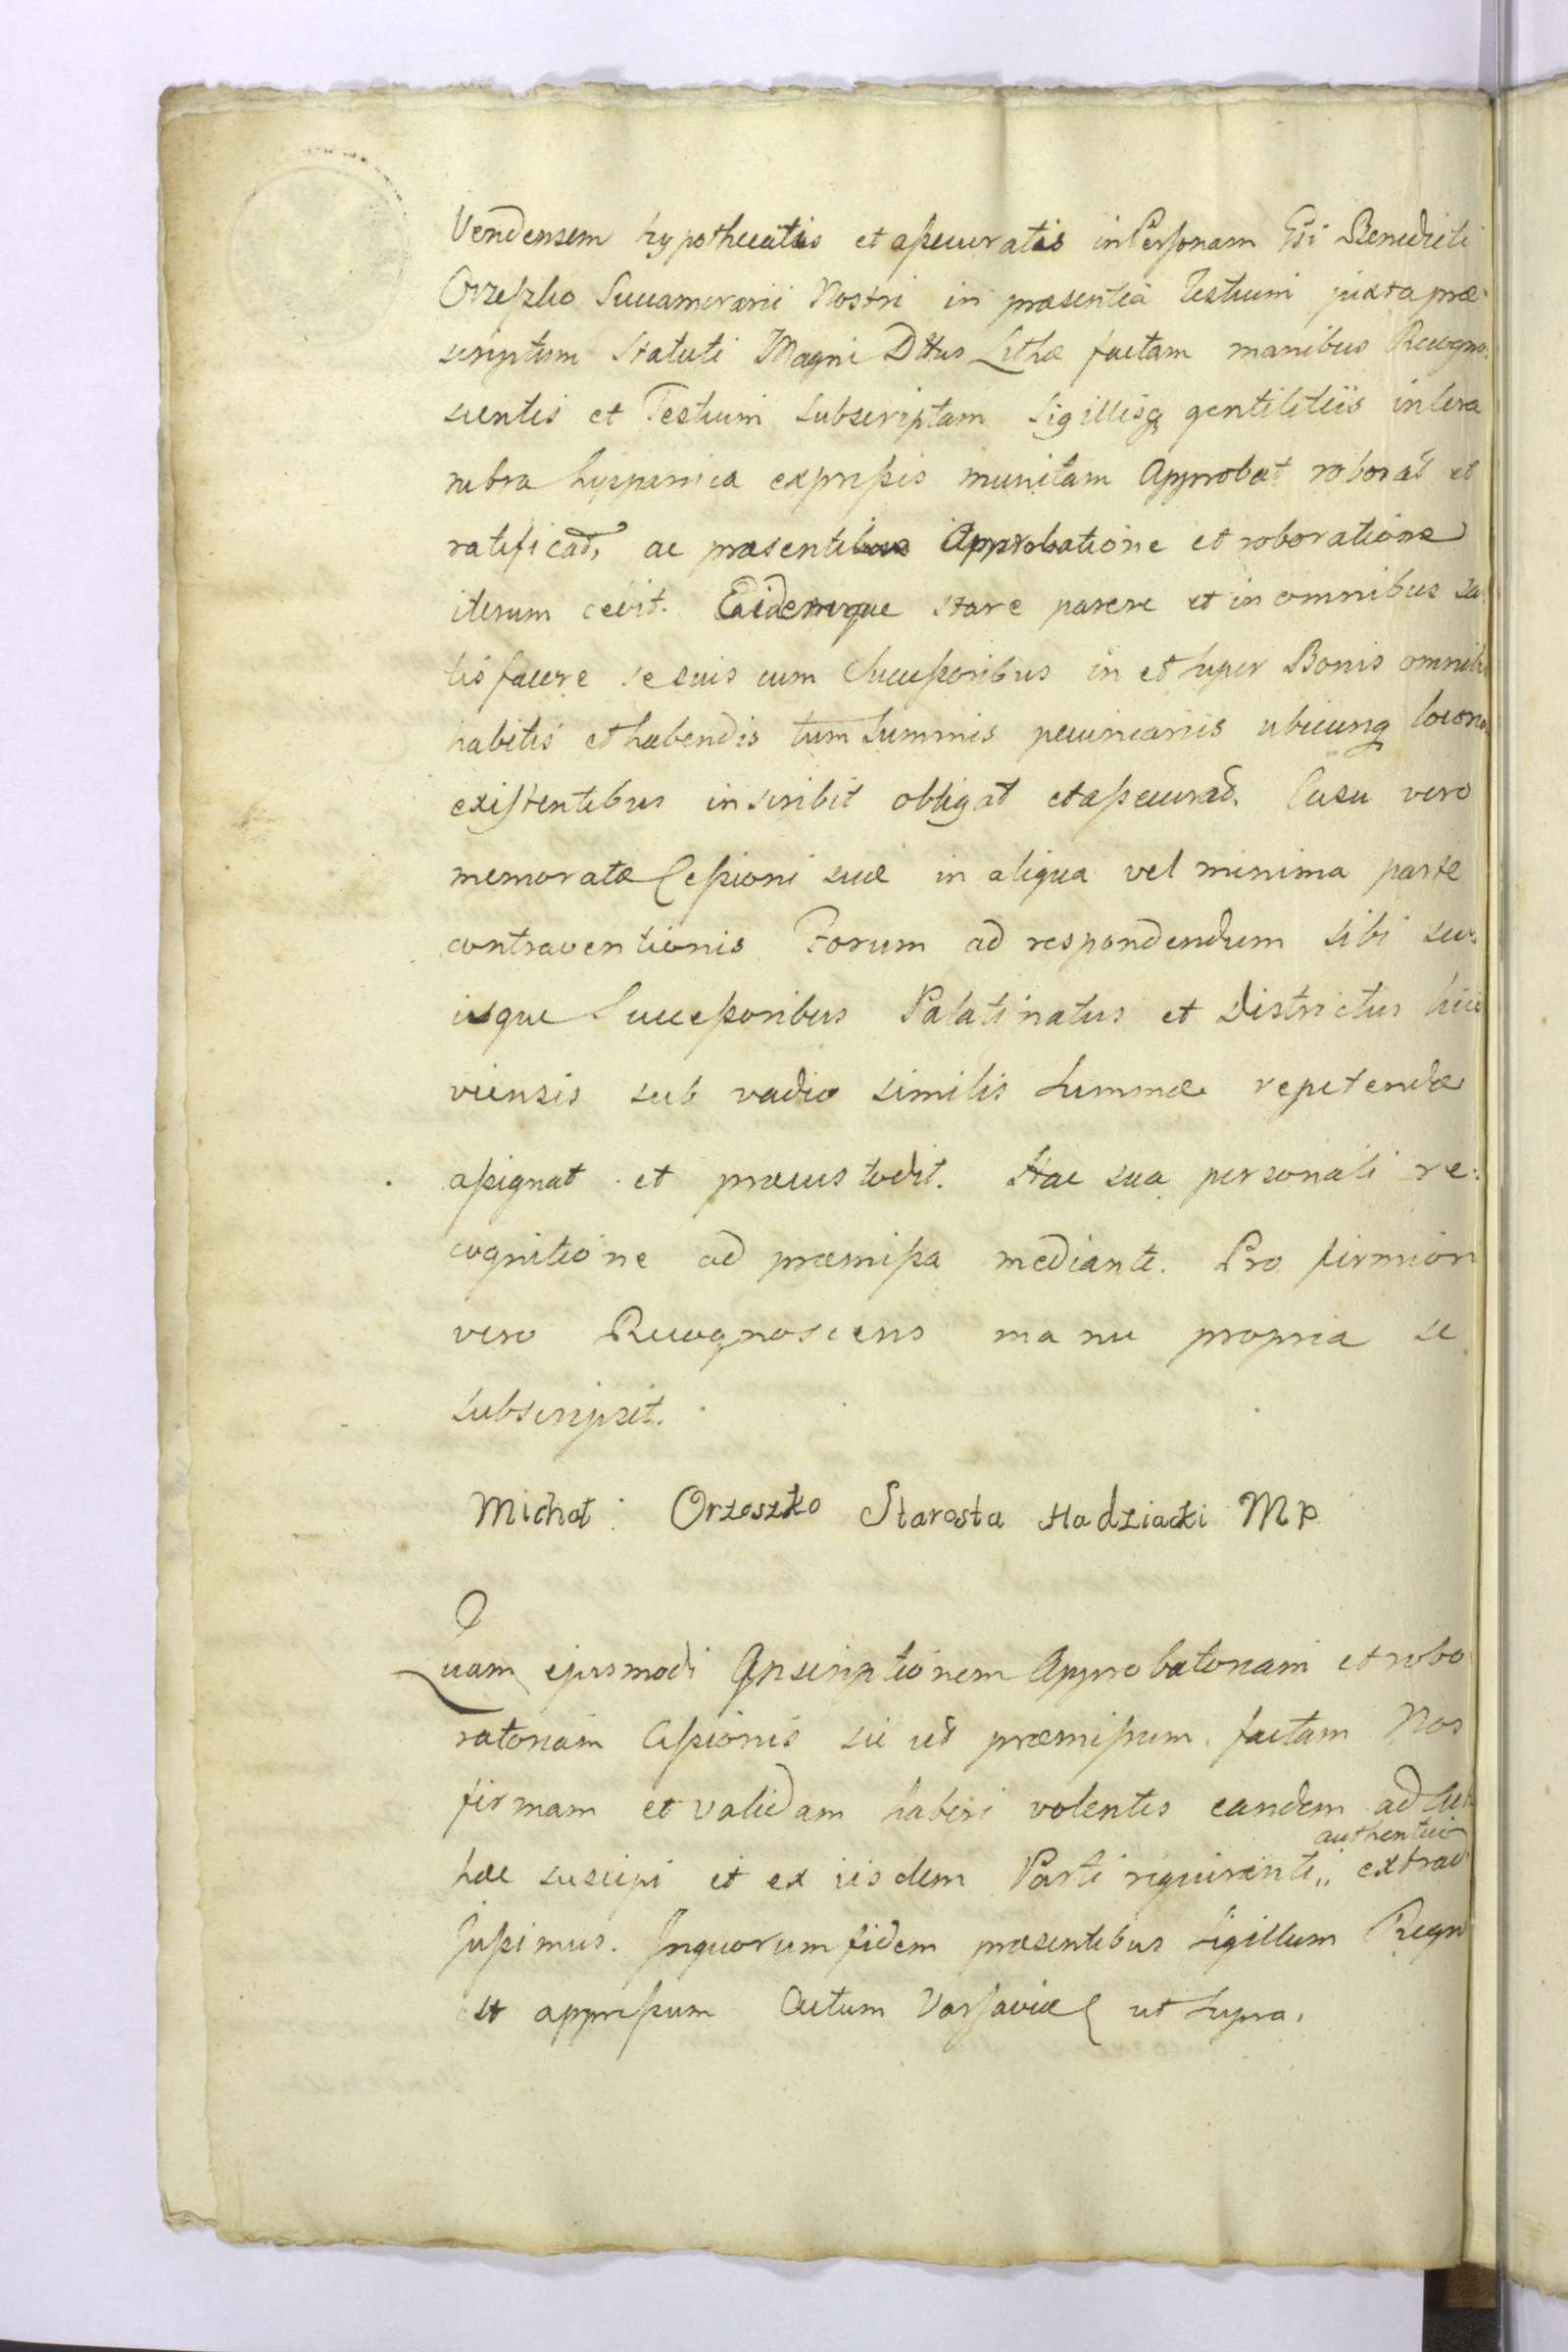 Vendensem hypothecatis et assecuratis in Personam Gsi Benedicti
Orzeszko Succamerarii Nostri in præsentia Testium juxta præ:
scriptum Statuti Magni Dttus Lithæ factam manibus Recogno
scentis et Testium subscriptam Sigillisq gentilitiis in cera
rubra hyspanica expressis munitam Approbat roborat et
ratificat, ac præsenti Approbatione et roboratione
iterum cedit. Eidemque stare parere et in omnibus sa
tisfacere se suis cum Successoribus in et super Bonis omnib
habitis et habendis tum Summis pecuniariis ubicunq locor
existentibus inscribit obligat et assecurat. Casu vero
memoratæ Cessioni suæ in aliqua vel minima parte
contraventionis Forum ad respondendum sibi su
isque Successoribus Palatinatus et Districtus
viensis sub vadio similis Summæ repetendæ
assignat et præcustodit. Hac sua personali re:
cognitione ad præmissa mediante. Pro firmiori
vero Recognoscens manu propria se
subscripsit.
Michał Orzeszko Starosta Hadziacki Mp
Quam ejusmodi Inscriptionem Approbatoriam et robo
ratoriam Cessionis sic ut præmissum factam Nos
firmam et validam haberi volentes eandem ad
hæc suscipi et ex iisdem Parti requirenti,, authentice extrad
Jussimus. In quorum fidem præsentibus Sigillum Regn
est appressum Actum Varsaviæ ut supra.